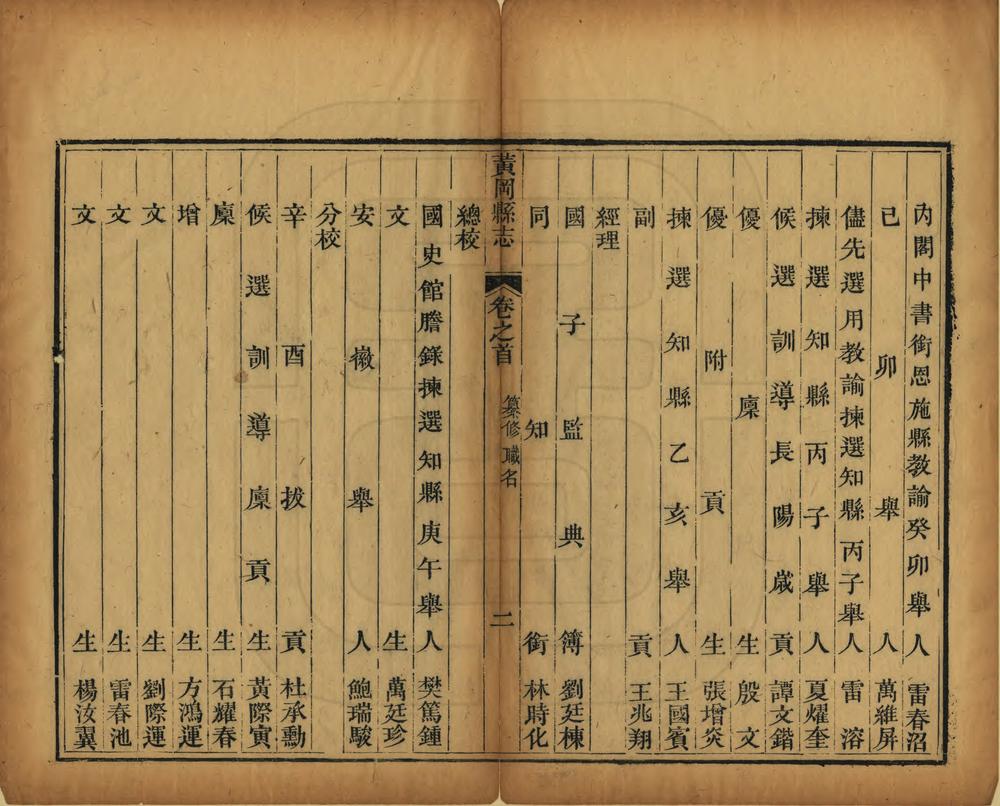 內閣中書銜恩施縣教諭癸卯舉人雷春沼
己卯舉人萬維屏
儘先選用教諭揀選知縣丙子舉人雷溶
揀選知縣丙子舉人夏燿奎
候選訓導長陽歲貢譚文鍇
優廩生殷文
優附貢生張增炎
揀選知縣乙亥舉人王國賓
副貢王兆翔
經理
國子監典簿劉廷棟
同知銜林時化
黃岡縣志
卷之首
纂修職名
二
總校
國史館謄錄揀選知縣庚午舉人樊篤鍾
文生萬廷珍
安徽舉人鮑瑞駿
分校
辛酉拔貢杜承勳
候選訓導廩貢生黃際寅
廩生石耀春
增生方鴻運
文生劉際運
文生雷春池
文生楊汝翼